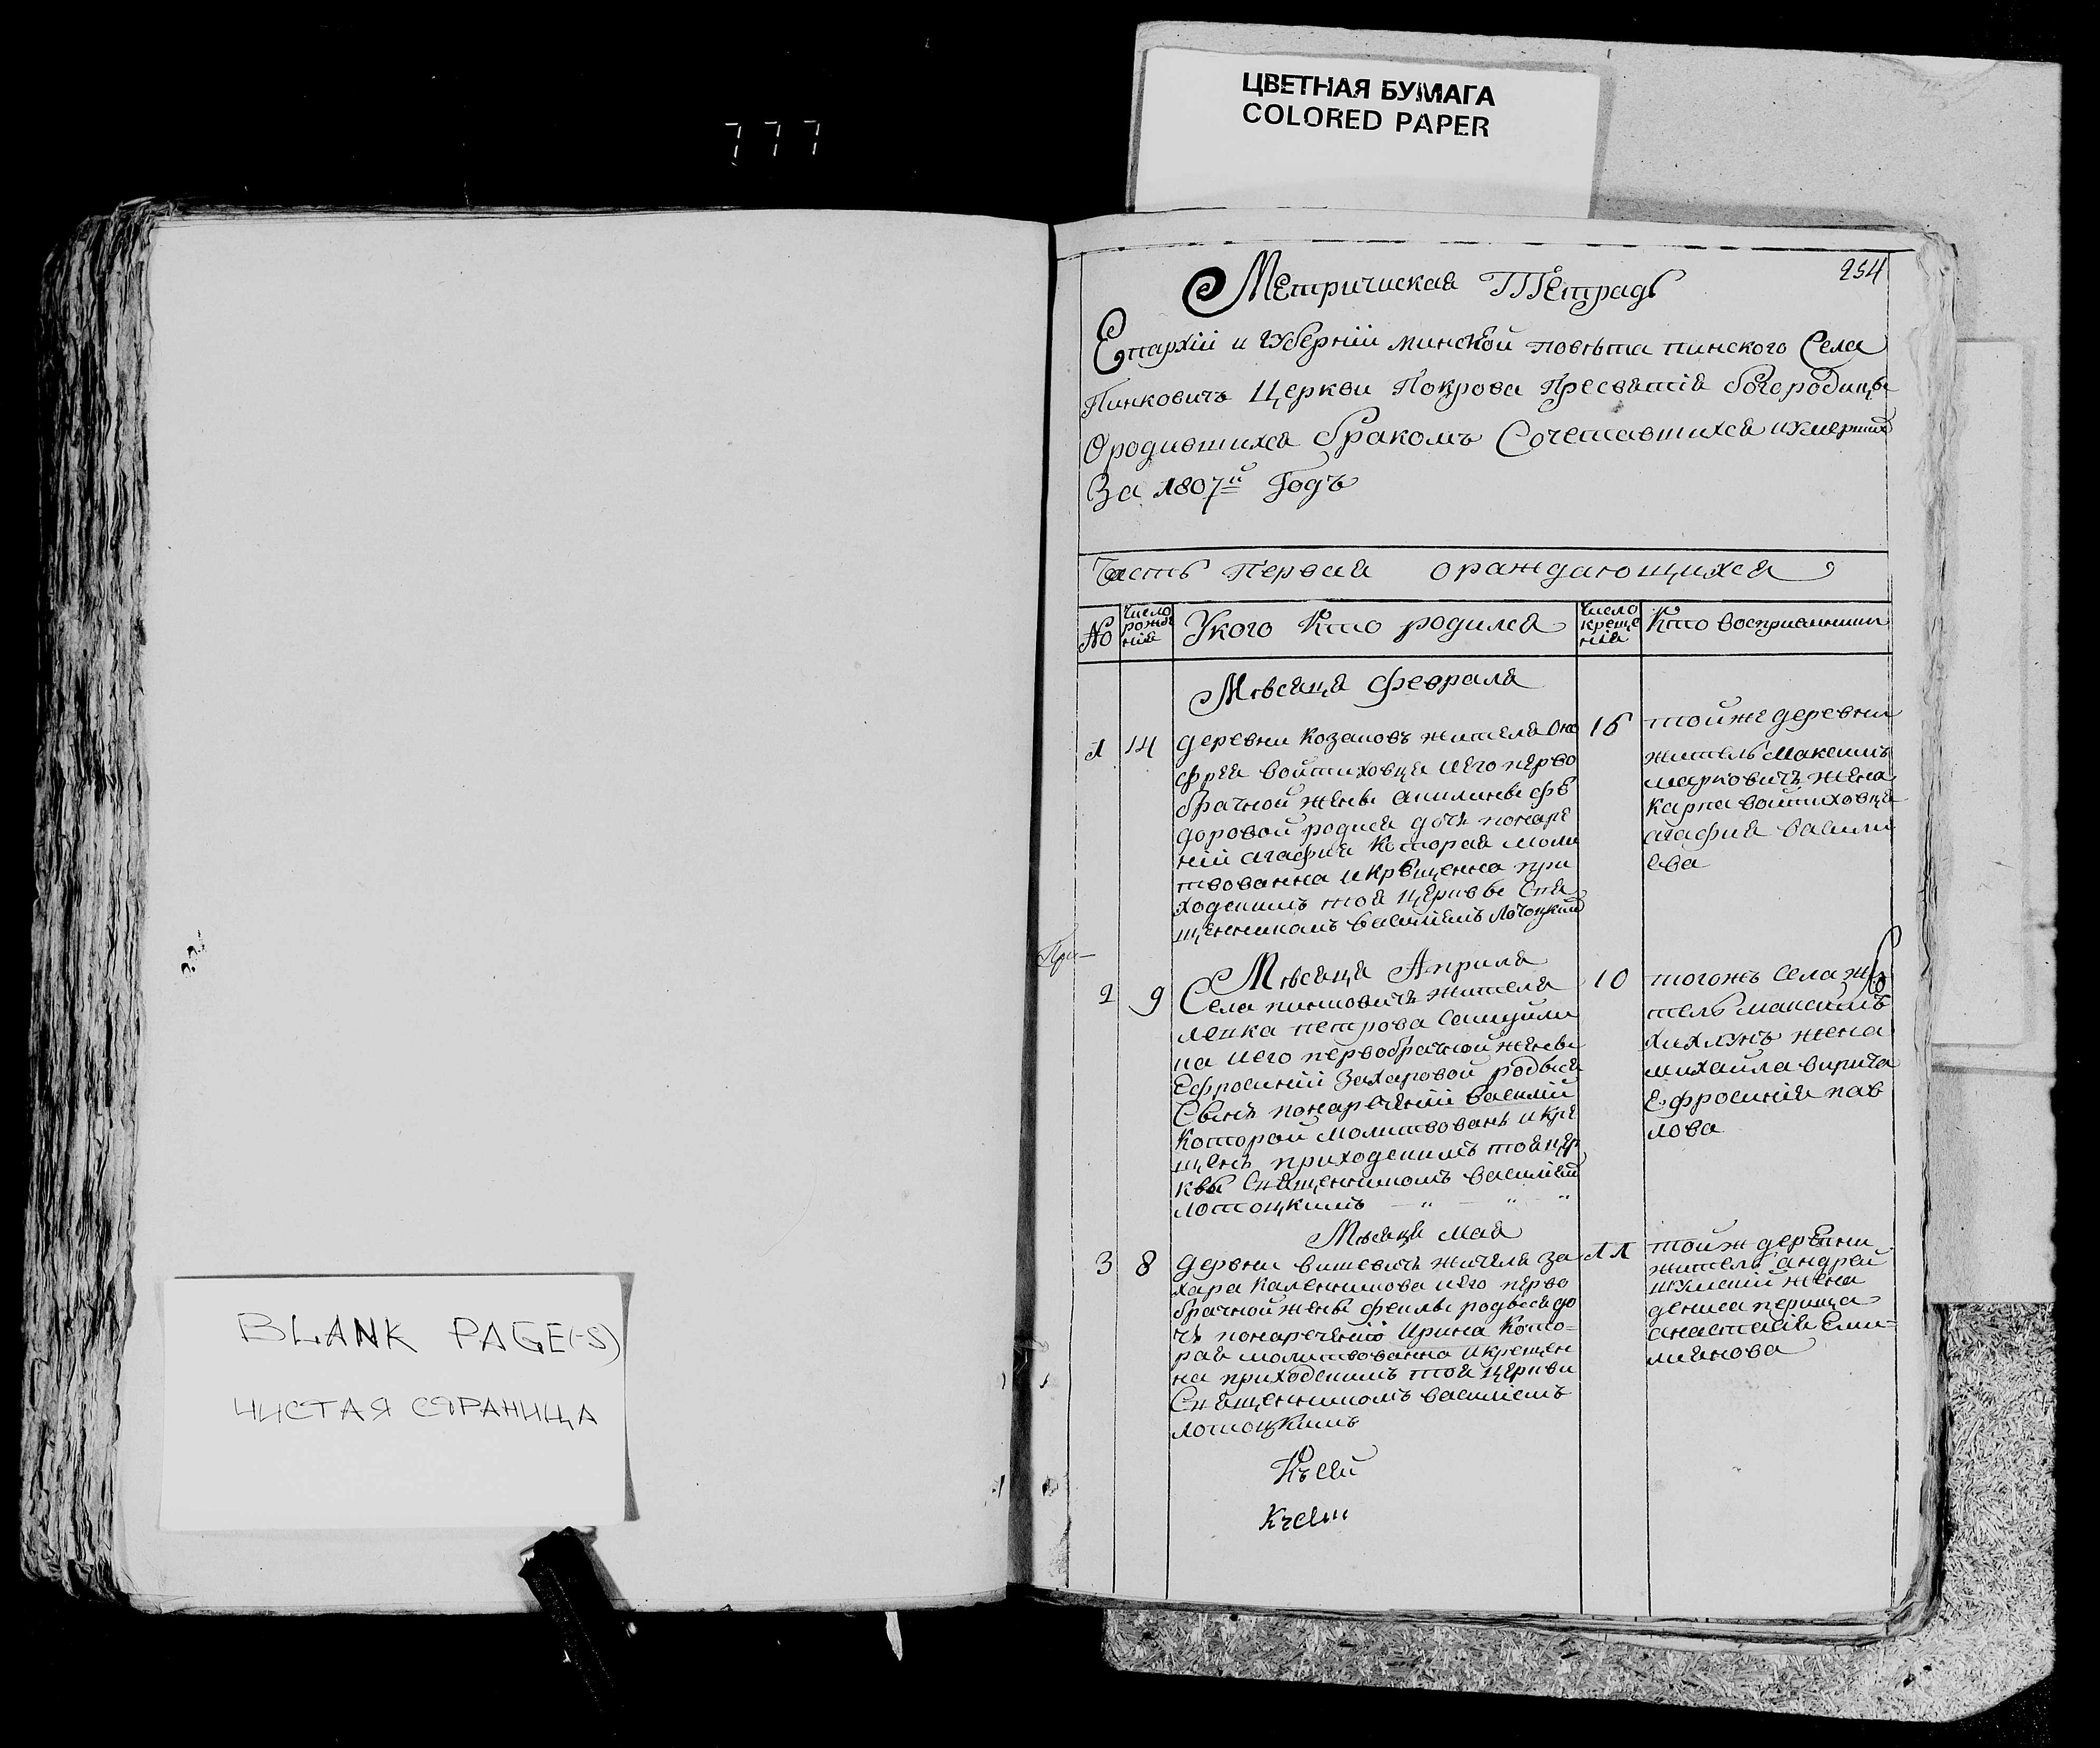 ЦВЕТНАЯ БУМАГА
COLORED PAPER
777
254
Метрическая Тетрадь
Епархіи и губерніи минской повѣта пинского Села
Пинковичъ Церкви Покрова Пресвятія богородицы
Ородившихся бракомъ Сочетавшихся и умерших
За 1807й Годъ
Часть первая ораждающихся
No
Число рожде нія
Укого Кто родился
Число креще нія
Кто восприемники
Мѣсяца февраля
1 14
деревни Козаковъ жителя Оно
фрея войтиховца и его перво
брачной жены акилины фе
доровой родися дочь понаре
ніи агафия Которая моли
твованна и крещенна при
ходскимъ тоя церквы Свя
щенникамъ василиемъ Лотоцким
16
тойже деревни
житель Максимъ
марковичъ жена
Карпа войтиховца
агафия васили
ева
При—
Мѣсяца Априля
2 9
Села пинковичъ жителя
петрова
на и его первобрачной жены
Ефросиніи Захаровой родыся
Сынъ понареченіи василій
Которой молитвованъ и кре
щенъ приходскимъ тоя цер
квы Священникомъ василием
лотоцкимъ
10
тогожъ Села жи
тель максимъ
жена
михайла вирича
Ефросинія пав
лова
Мѣсяца мая
3 8
деревни вишевичъ жителя за
хара каленникова и его перво
брачной жены феклы родыся до
чъ понареченію Ирина Кото=
рая молитвованна и крещен
на приходскимъ тоя церкви
Священникомъ василіемъ
лотоцкимъ
11
тойж деревни
житель андрей
жена
дениса
анастасія Еми=
лиянова
BLANK PAGE(-S)
ЧИСТАЯ СТРАНИЦА